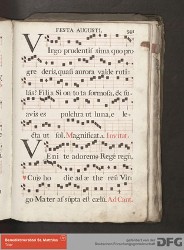 FESTA AUGUSTI.
Virgo prudentissima quo pro
gre deris, quasi aurora valde ruti-
lās? Filia Si on tota formosa, & su-
avis es pulchra ut luna, e le-
cta ut sol. Magnificat. Invitat.
Venite adoremus Regē regū,
Cujus ho die ad æ the reū Vir-
go Mater assūpta est cœlū. Ad Cant.
Benediktinerabtei St. Matthias
Trier
gefördert von der
DFG
Deutschen Forschungsgemeinschaft